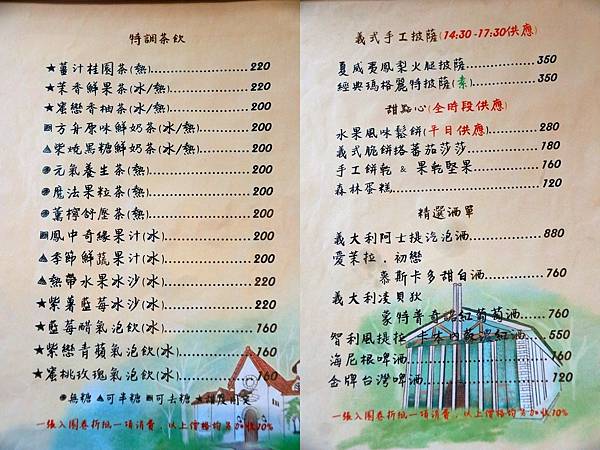 特調茶飲
★薑汁桂圓茶(熱)........................220
★茉香鮮果茶(冰/熱)....................220
★蜜戀香柚茶(冰/熱)....................200
▣方舟原味鮮奶茶(冰/熱)..............200
▲柴燒黑糖鮮奶茶(冰/熱)..............200
●元氣養生茶(熱)........................200
●魔法果粒茶(熱)........................200
●薰檸舒壓茶(熱)........................200
▣鳳中奇緣果汁(冰)....................200
▲季節鮮蔬果汁(冰)....................200
▲熱帶水果冰沙(冰)....................220
★紫薯藍莓冰沙(冰)....................220
★藍莓醋氣泡飲(冰)....................160
★紫戀青蘋氣泡飲(冰).................160
★蜜桃玫瑰氣泡飲(冰).................160
●無糖 ▲可半糖 ▣可去糖 ★甜度固定
一張入園卷折抵一項消費，以上價格均另加收10%
義式手工披薩(14:30-17:30供應)
夏威夷鳳梨火腿披薩....................350
經典瑪格麗特披薩(素).................350
甜點心(全時段供應)
水果風味鬆餅(平日供應)..............280
義式脆餅搭蕃茄莎莎....................180
手工餅乾 & 果乾堅果....................160
森林蛋糕....................................120
精選酒單
義大利阿士提汽泡酒....................880
愛茉拉．初戀
慕斯卡多甜白酒...........760
義大利凌貝狄
蒙特普奇諾紅葡萄酒....760
智利風提拉 卡本內蘇濃紅酒....550
海尼根啤酒.................................160
金牌台灣啤酒..............................120
一張入園卷折抵一項消費，以上價格均另加收10%